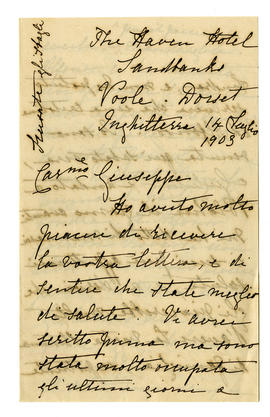 Scusate gli sbagli
The Haven Hotel
Sandbanks
Poole. Dorset
Inghilterra 14 Luglio
1903
Carmo Giuseppe
Ho avuto molto
piacere di ricevere
la vostra lettera, e di
sentire che state meglio
di salute Vi avrei
scritto prima ma sono
stata molto occupata
gli ultimi giorni a